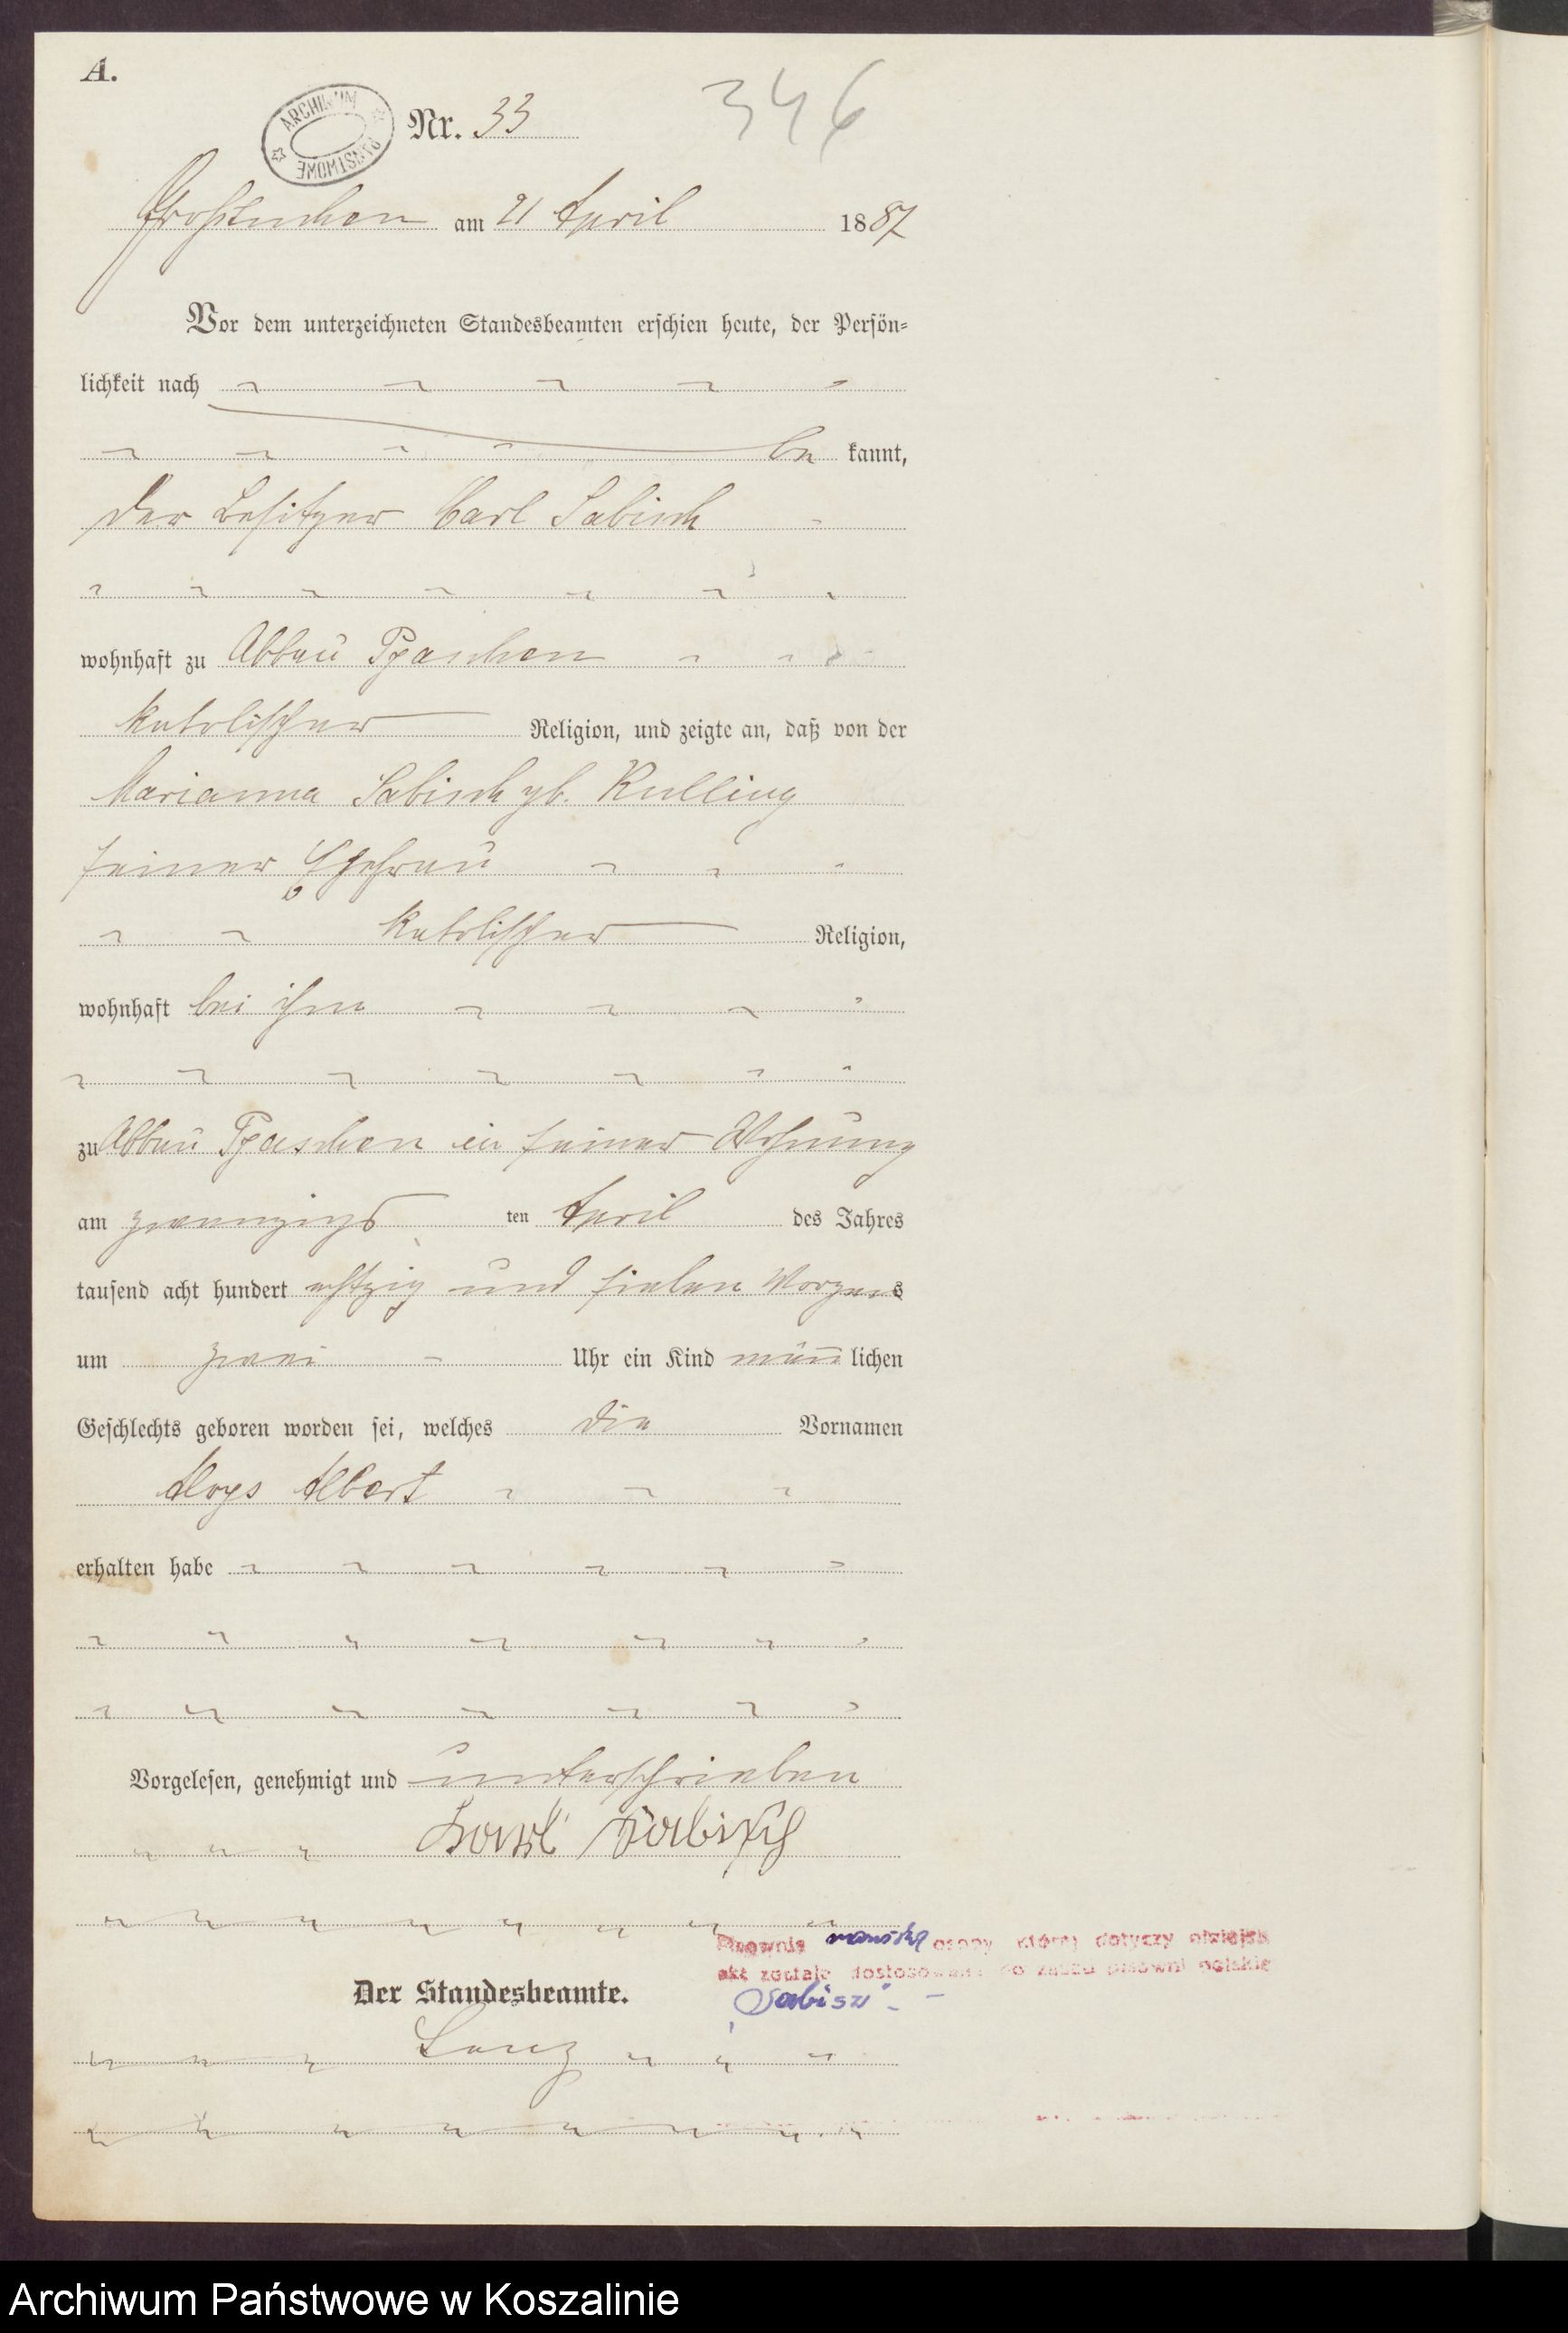 A.
ARCHIWUM PAŃSTWOWE
Nr. 33
346
Großtuchen am 21 April 1887
Vor dem unterzeichneten Standesbeamten erschien heute, der Persön-
lichkeit nach
be kannt,
der Besitzer Carl Sabisch
wohnhaft zu Abbau Tschaschen
katolischer Religion, und zeigte an, daß von der
Marianna Sabisch gb. Kulling
seiner Ehefrau
katolischer Religion,
wohnhaft bei ihm
zu Abbau in seiner Wohnung
am zwanzigs ten April des Jahres
tausend acht hundert achtzig und sieben Morgens
um zwei Uhr ein Kind männlichen
Geschlechts geboren worden sei, welches die Vornamen
Aloys Albert
erhalten habe
Vorgelesen, genehmigt und unterschrieben
Karl Sabisch
Pisownia nazwiska osoby której dotyczy niniejszy
akt została dostosowana do zasad pisowni polskiej
Der Standesbeamte.
Sabisz
Archiwum Państwowe w Koszalinie